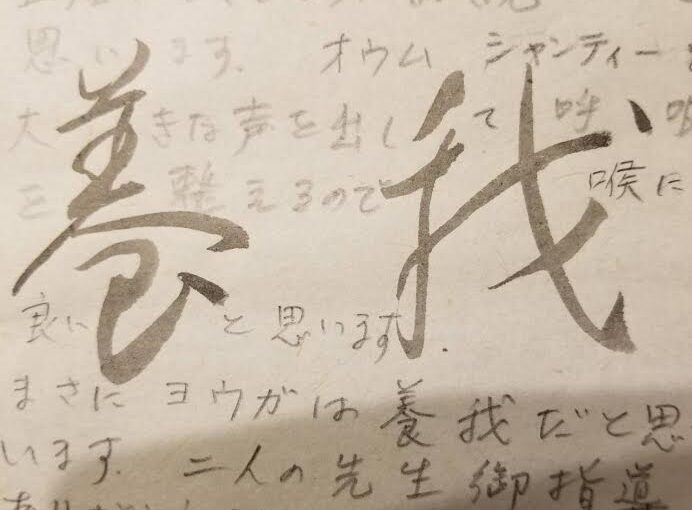 思います。 オウム シャンティーを
大きな声を出して 呼吸
を 整えるので 喉に
養我
良い と思います。
まさに ヨウガは 養我だと思
います。 二人の先生 御指導